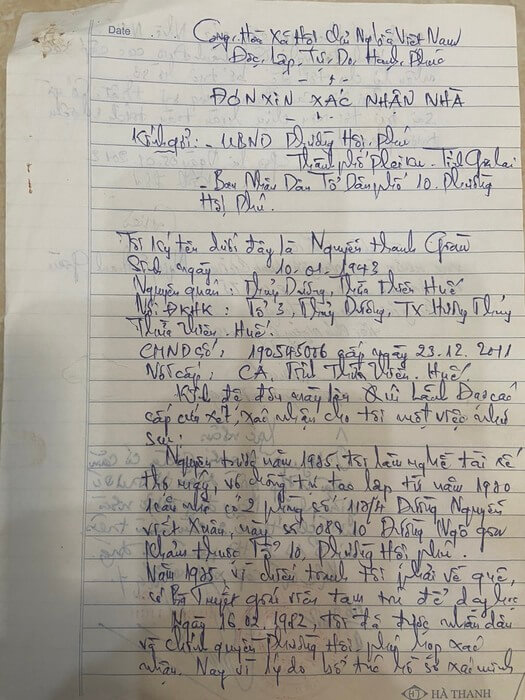 Date
Cộng Hòa Xã Hội Chủ Nghĩa Việt Nam
Độc Lập - Tự Do - Hạnh Phúc
ĐƠN XIN XÁC NHẬN NHÀ
Kính gởi: - UBND Phường Hội Phú
Thành phố Pleiku. Tỉnh Gia Lai
- Ban Nhân Dân Tổ Dân phố 10. Phường
Hội Phú.
Tôi ký tên dưới đây là Nguyễn Thanh
Sinh ngày 10.01.1943
Nguyên quán: Thủy Dương, Thừa Thiên Huế
Nơi ĐKHK: Tổ 3, Thủy Dương, TX Hương Thủy
Thừa Thiên Huế.
CMND số: cấp ngày 23.12.2011
Nơi cấp: CA. Tỉnh Thừa Thiên Huế.
Kính đề đơn này lên Quí Lãnh Đạo các
cấp cứu xét, xác nhận cho tôi một việc như
sau:
Nguyên trước năm 1975, tôi làm nghề tài xế
thợ máy, vợ chồng tôi tạo lập từ năm
căn nhà có 2 phòng số 110/4 Đường Nguyễn
Viết Xuân, nay số Đường Ngô Gia
Khảm thuộc Tổ 10, Phường Hội Phú.
Năm 1975 vì chiến tranh tôi phải về quê,
có Bà Tuyết giáo viên tạm trú để dạy học
Ngày 16.02.1982, tôi đã được nhân dân
và chính quyền Phường Hội Phú họp xác
nhận. Nay vì lý do bổ túc hồ sơ xác minh
HT HÀ THANH